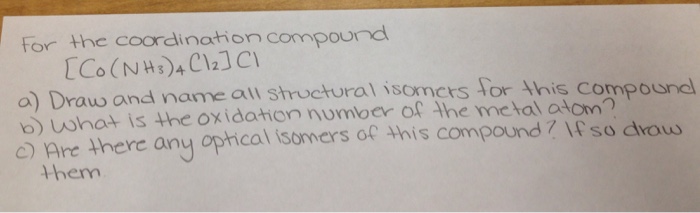 For the coordination compound
[Co(NH₃)₄Cl₂]Cl
a) Draw and name all structural isomers for this compound
b) What is the oxidation number of the metal atom?
c) Are there any optical isomers of this compound? If so draw
them